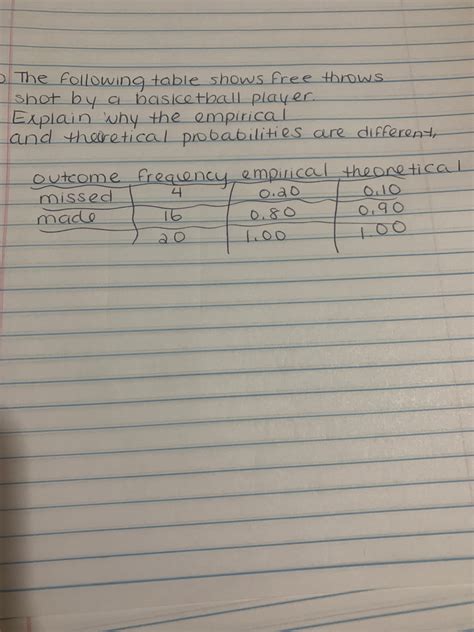 The following table shows free throws
shot by a basketball player.
Explain why the empirical
and theoretical probabilities are different,
outcome frequency empirical theoretical
missed 4 0.20 0.10
made 16 0.80 0.90
20 1.00 1.00